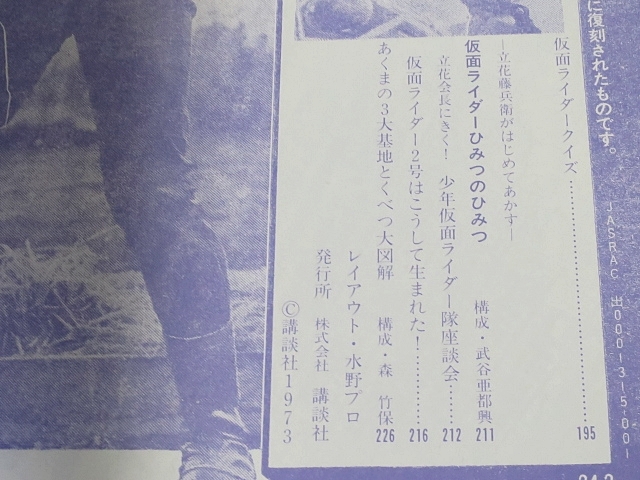 に復刻されたものです。
JASRAC 出0001315-001
仮面ライダークイズ…………………………195
―立花藤兵衛がはじめてあかす―
仮面ライダーひみつのひみつ 構成・武谷亜都興 211
立花会長にきく! 少年仮面ライダー隊座談会……212
仮面ライダー2号はこうして生まれた!………216
あくまの3大基地とくべつ大図解 構成・森 竹保 226
レイアウト・水野プロ
発行所 株式会社 講談社
©講談社1973